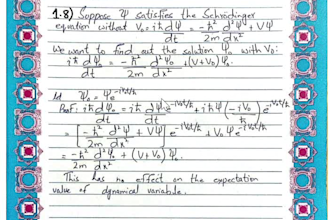 1.8) Suppose Ψ satisfies the Schrödinger
equation without V₀: iħ dΨ/dt = -ħ²/2m d²Ψ/dx² + VΨ
We want to find out the solution Ψ₀ with V₀:
iħ dΨ₀/dt = -ħ²/2m d²Ψ₀/dx² + (V+V₀)Ψ₀.
Ψ₀ = Ψe^(-iV₀t/ħ)
Proof: iħ dΨ₀/dt = iħ dΨ/dt e^(-iV₀t/ħ) + iħΨ(-iV₀/ħ)e^(-iV₀t/ħ)
= [-ħ²/2m d²Ψ/dx² + VΨ] e^(-iV₀t/ħ) + V₀Ψe^(-iV₀t/ħ)
= -ħ²/2m d²Ψ₀/dx² + (V+V₀)Ψ₀.
This has no effect on the expectation
value of dynamical variable.